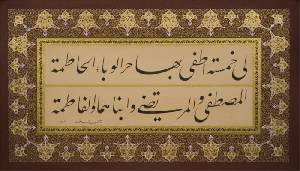 لي خمسة اطفي بها حر الوباء الحاطمة
المصطفى والمرتضى وابناهما والفاطمة